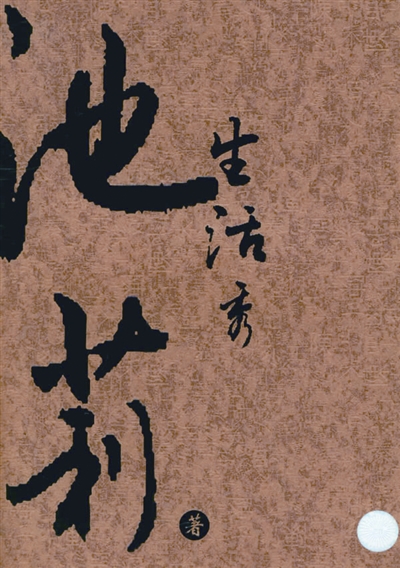 池莉
生活秀
著